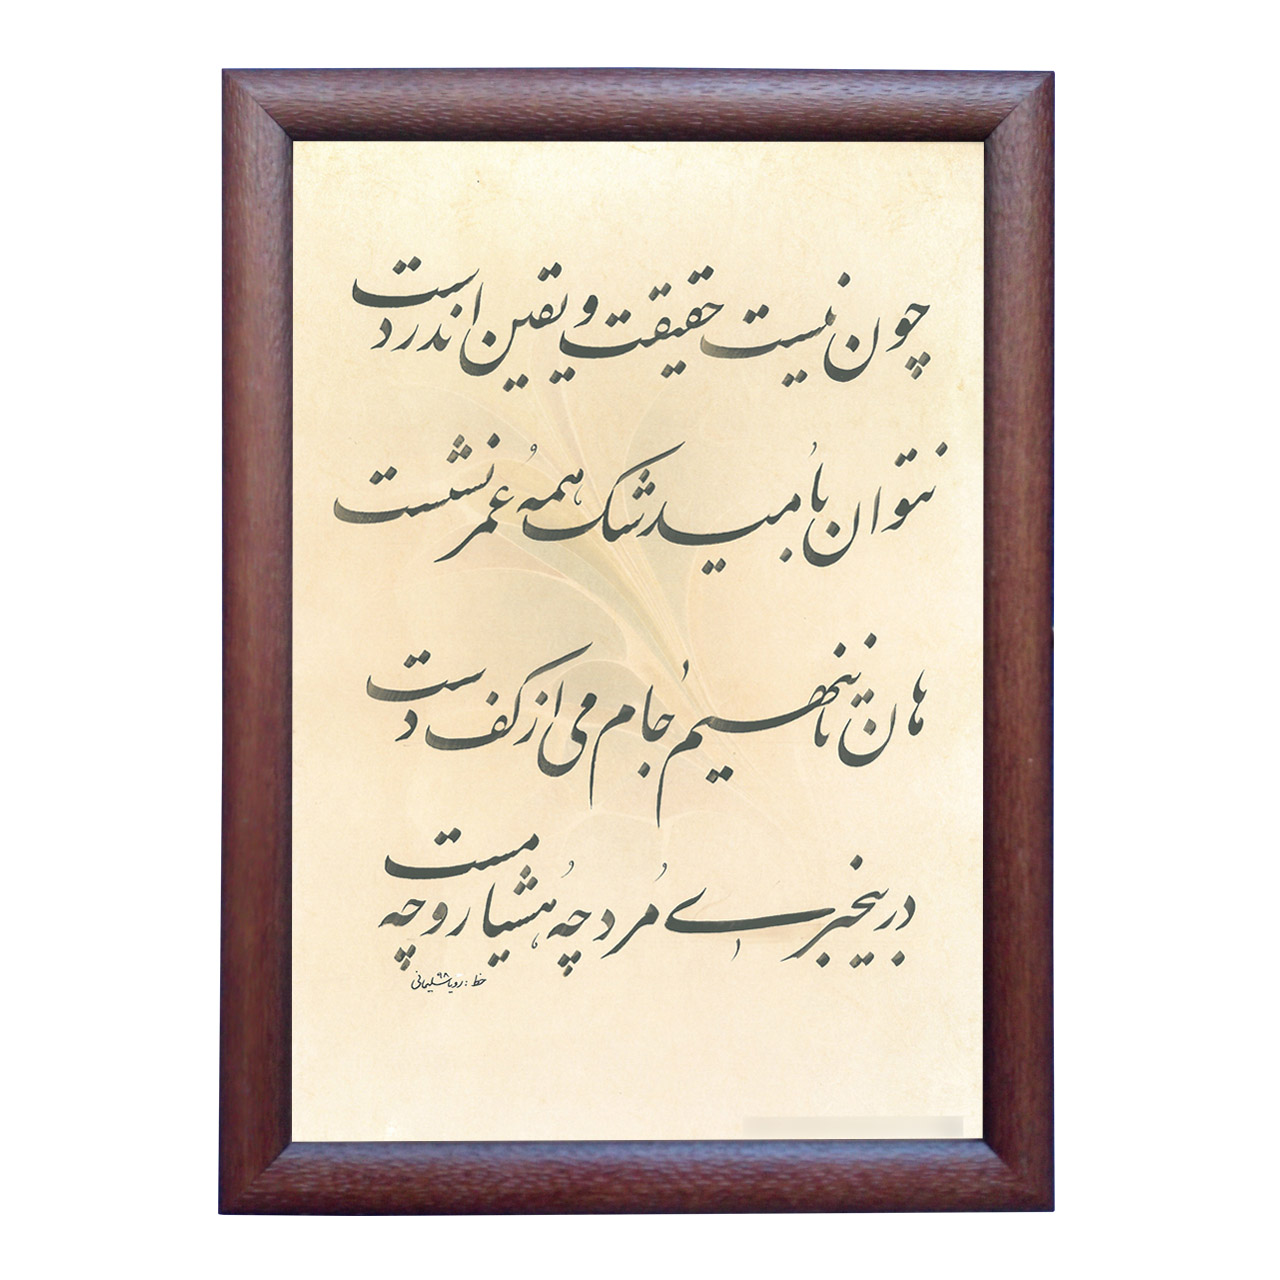 چون نیست حقیقت و یقین اندر دست
نتوان بامید شک همه عمر نشست
هان تا ننهیم جام می از کف دست
در بیخبری مرد چه هشیار و چه مست
خط : رویا سلیمانی ۹۸